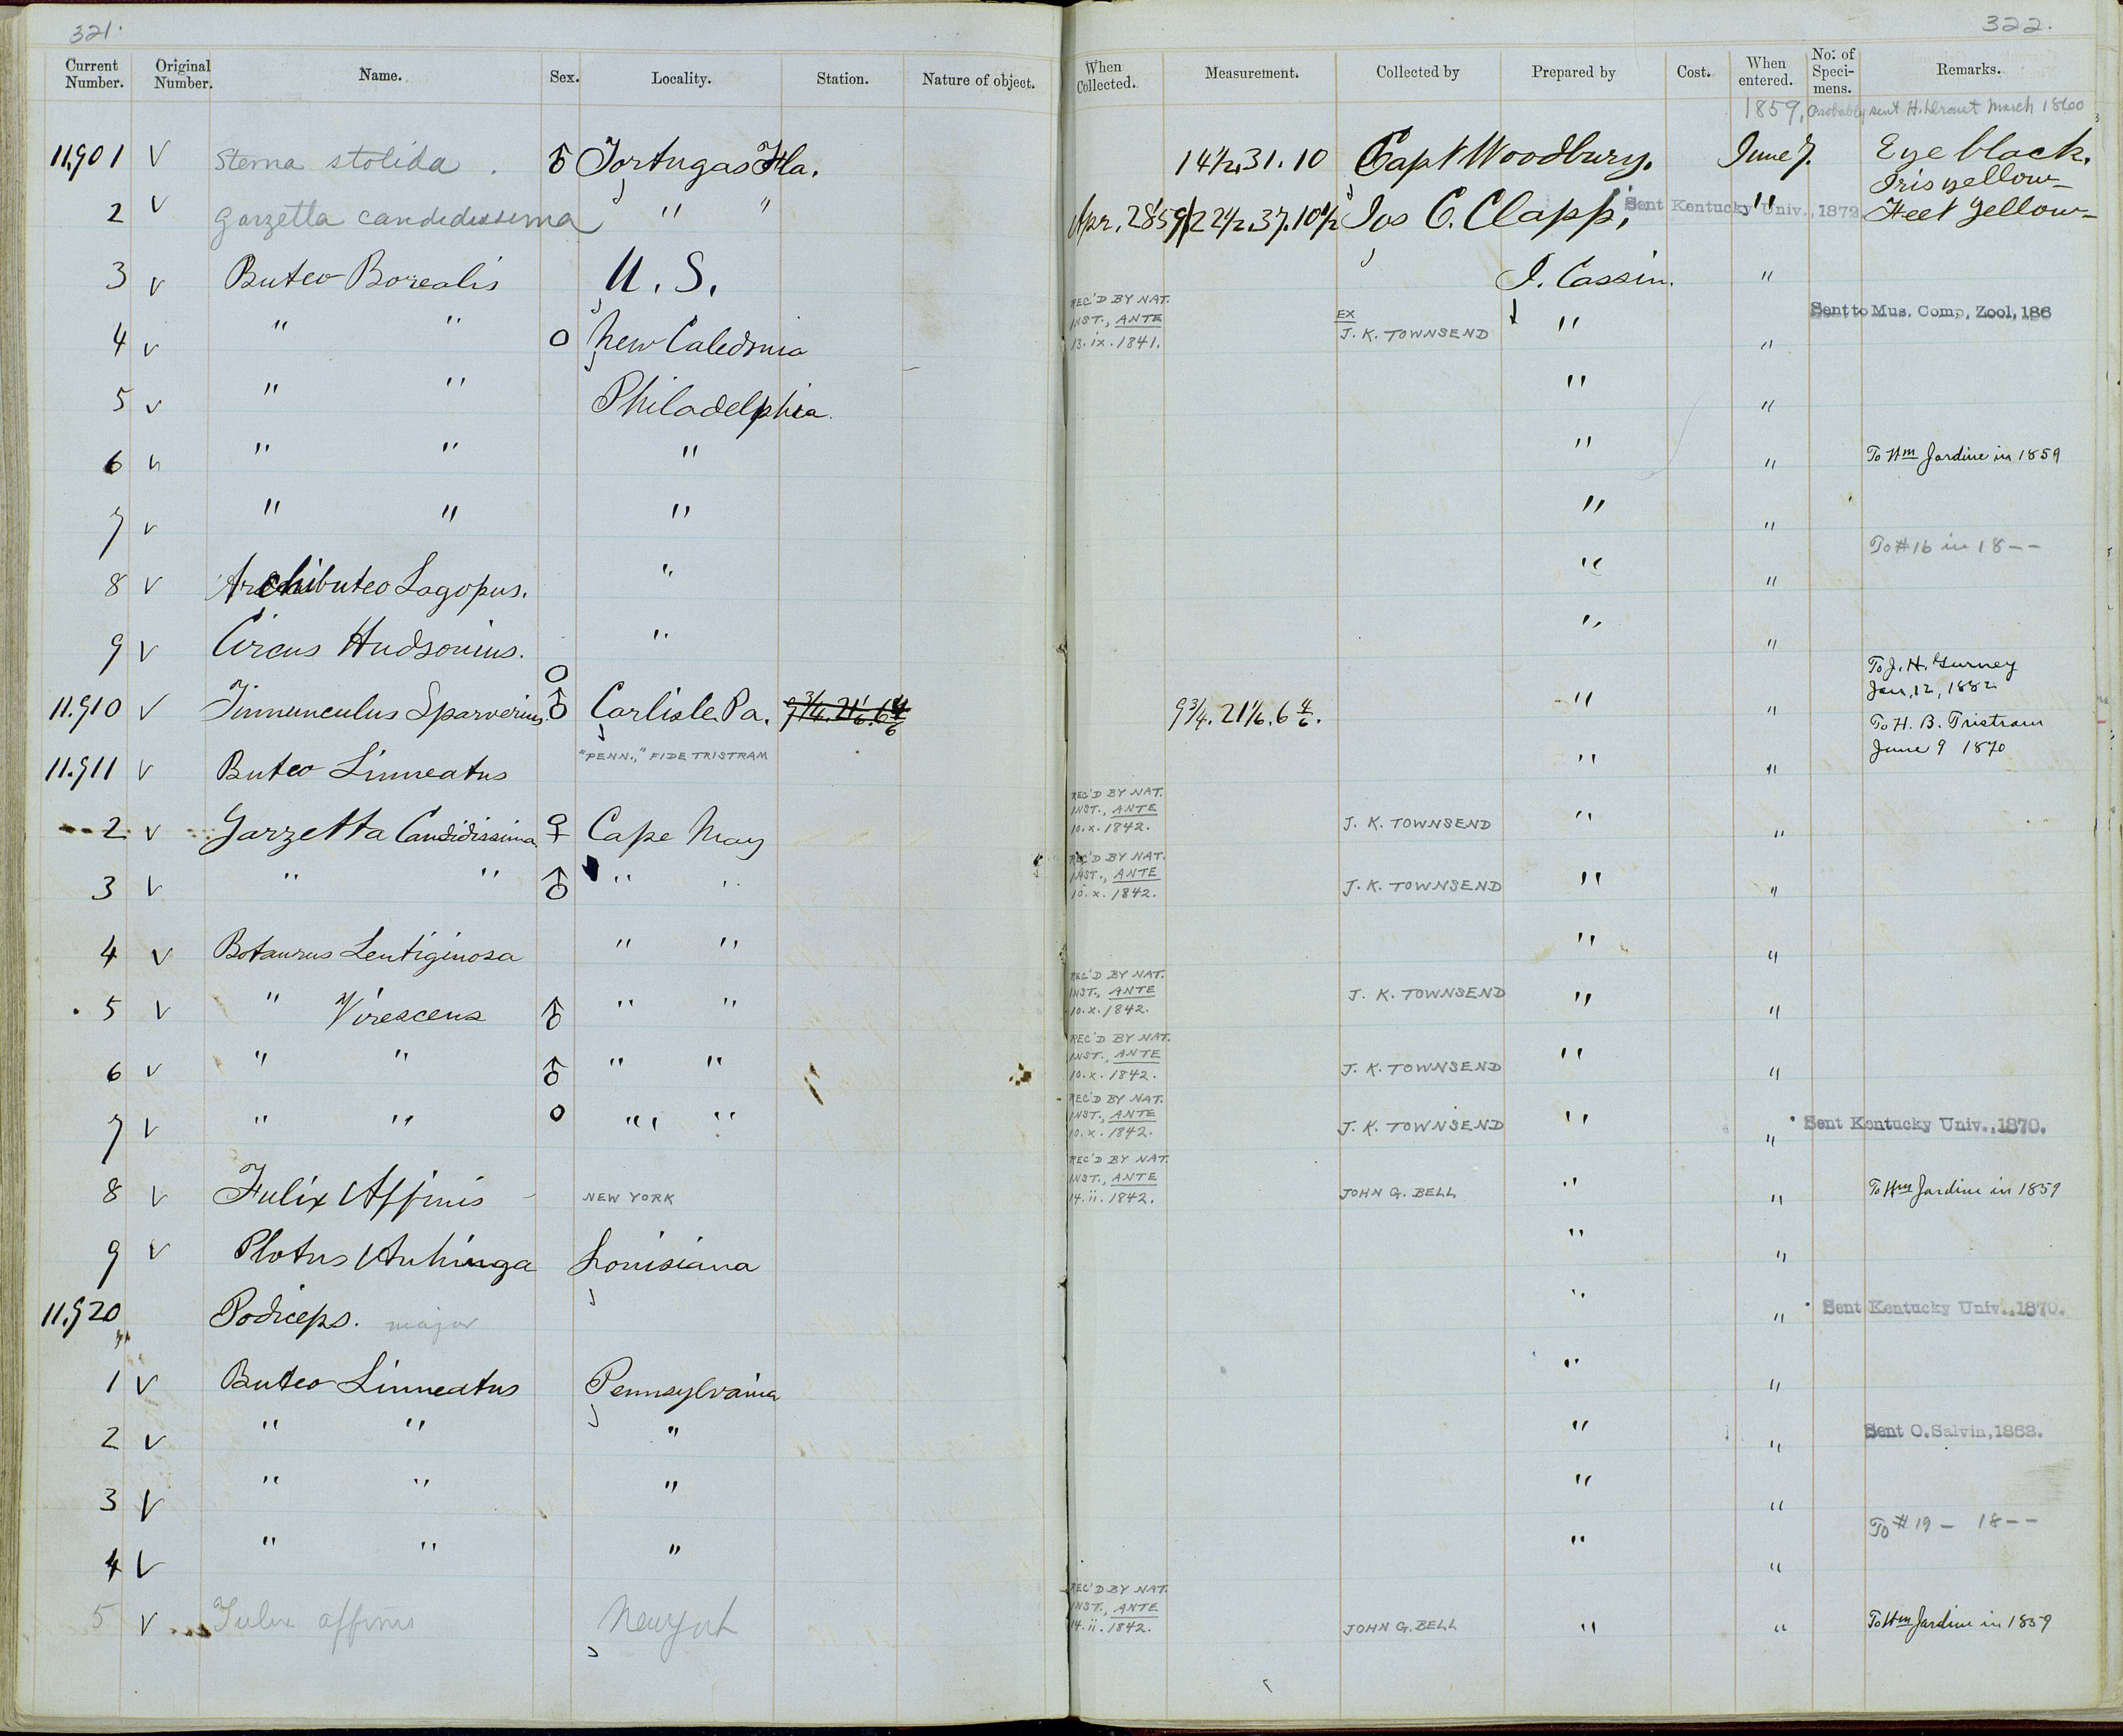 321.
322.
Current Number. Original Number. Name. Sex. Locality. Station. Nature of object. When Collected. Measurement. Collected by Prepared by Cost. When entered. No. of Specimens. Remarks.
1859. Probably sent March 1860
11,901 V Sterna stolida. Tortugas Fla. 14 1/2. 31. 10 Capt Woodbury. June 7. Eye black.
Iris yellow
2 V Garzetta candidissima " " Apr. 28 '59 22 1/2. 37. 10 1/2 Jos C. Clapp. Sent Kentucky Univ., 1872. " Feet yellow
3 V Buteo Borealis U. S. J. Cassin. "
4 V " " O New Caledonia REC'D BY NAT. INST., ANTE 13. ix. 1841. EX J. K. TOWNSEND " " Sent to Mus. Comp. Zool, 186
5 V " " Philadelphia " "
6 V " " " " " To Wm Jardine in 1859
7 V " " " " "
To #16 in 18--
8 V Archibuteo Lagopus. " " "
9 V Circus Hudsonius. " " "
To J. H. Gurney
Jan, 12, 1882
11.910 V Tinnunculus Sparverius ♂ Carlisle Pa. 9 3/4. 21 1/6. 6 4/6 9 3/4. 21 1/6. 6 4/6. " "
To H. B. Tristram
June 9 1870
11.911 V Buteo Linneatus "PENN.," FIDE TRISTRAM " "
2 V Garzetta Candidissima ♀ Cape May REC'D BY NAT. INST., ANTE 10. x. 1842. J. K. TOWNSEND " "
3 V " " ♂ " " REC'D BY NAT. INST., ANTE 10. x. 1842. J. K. TOWNSEND " "
4 V Botaurus Lentiginosa " " " "
5 V " Virescens ♂ " " REC'D BY NAT. INST., ANTE 10. x. 1842. J. K. TOWNSEND " "
6 V " " ♂ " " REC'D BY NAT. INST., ANTE 10. x. 1842. J. K. TOWNSEND " "
7 V " " O " " REC'D BY NAT. INST., ANTE 10. x. 1842. J. K. TOWNSEND " " Sent Kentucky Univ., 1870.
8 V Fulix Affinis NEW YORK REC'D BY NAT. INST., ANTE 14. ii. 1842. JOHN G. BELL " " To Wm Jardine in 1859
9 V Plotus Anhinga Louisiana " "
11.920 Podiceps. major " " Sent Kentucky Univ., 1870.
1 V Buteo Linneatus Pennsylvania " "
2 V " " " " " Sent O. Salvin, 1863.
3 V " " " " "
To #19 - 18--
4 V " " " " "
5 V Fulix affinis New York REC'D BY NAT. INST., ANTE 14. ii. 1842. JOHN G. BELL " " To Wm Jardine in 1859